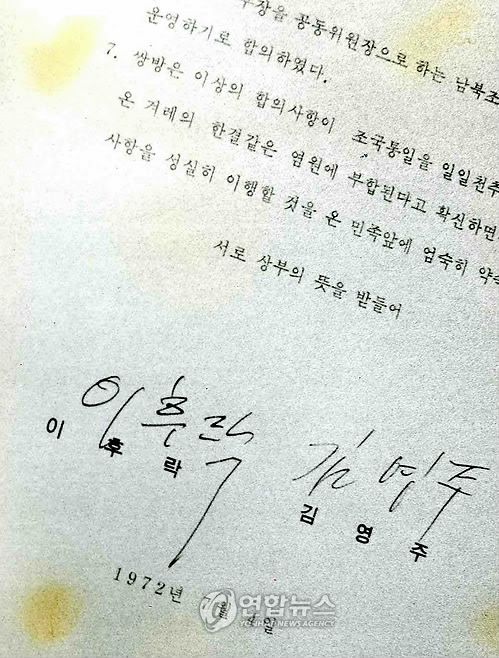 부장을 공동위원장으로 하는 남북조
운영하기로 합의하였다.
7. 쌍방은 이상의 합의사항이 조국통일을 일일천추
온 겨레의 한결같은 염원에 부합된다고 확신하면
사항을 성실히 이행할 것을 온 민족앞에 엄숙히 약속
서로 상부의 뜻을 받들어
이후락 김영주
이 후 락 김 영 주
1972년 7월 4일
연합뉴스
YONHAP NEWS AGENCY